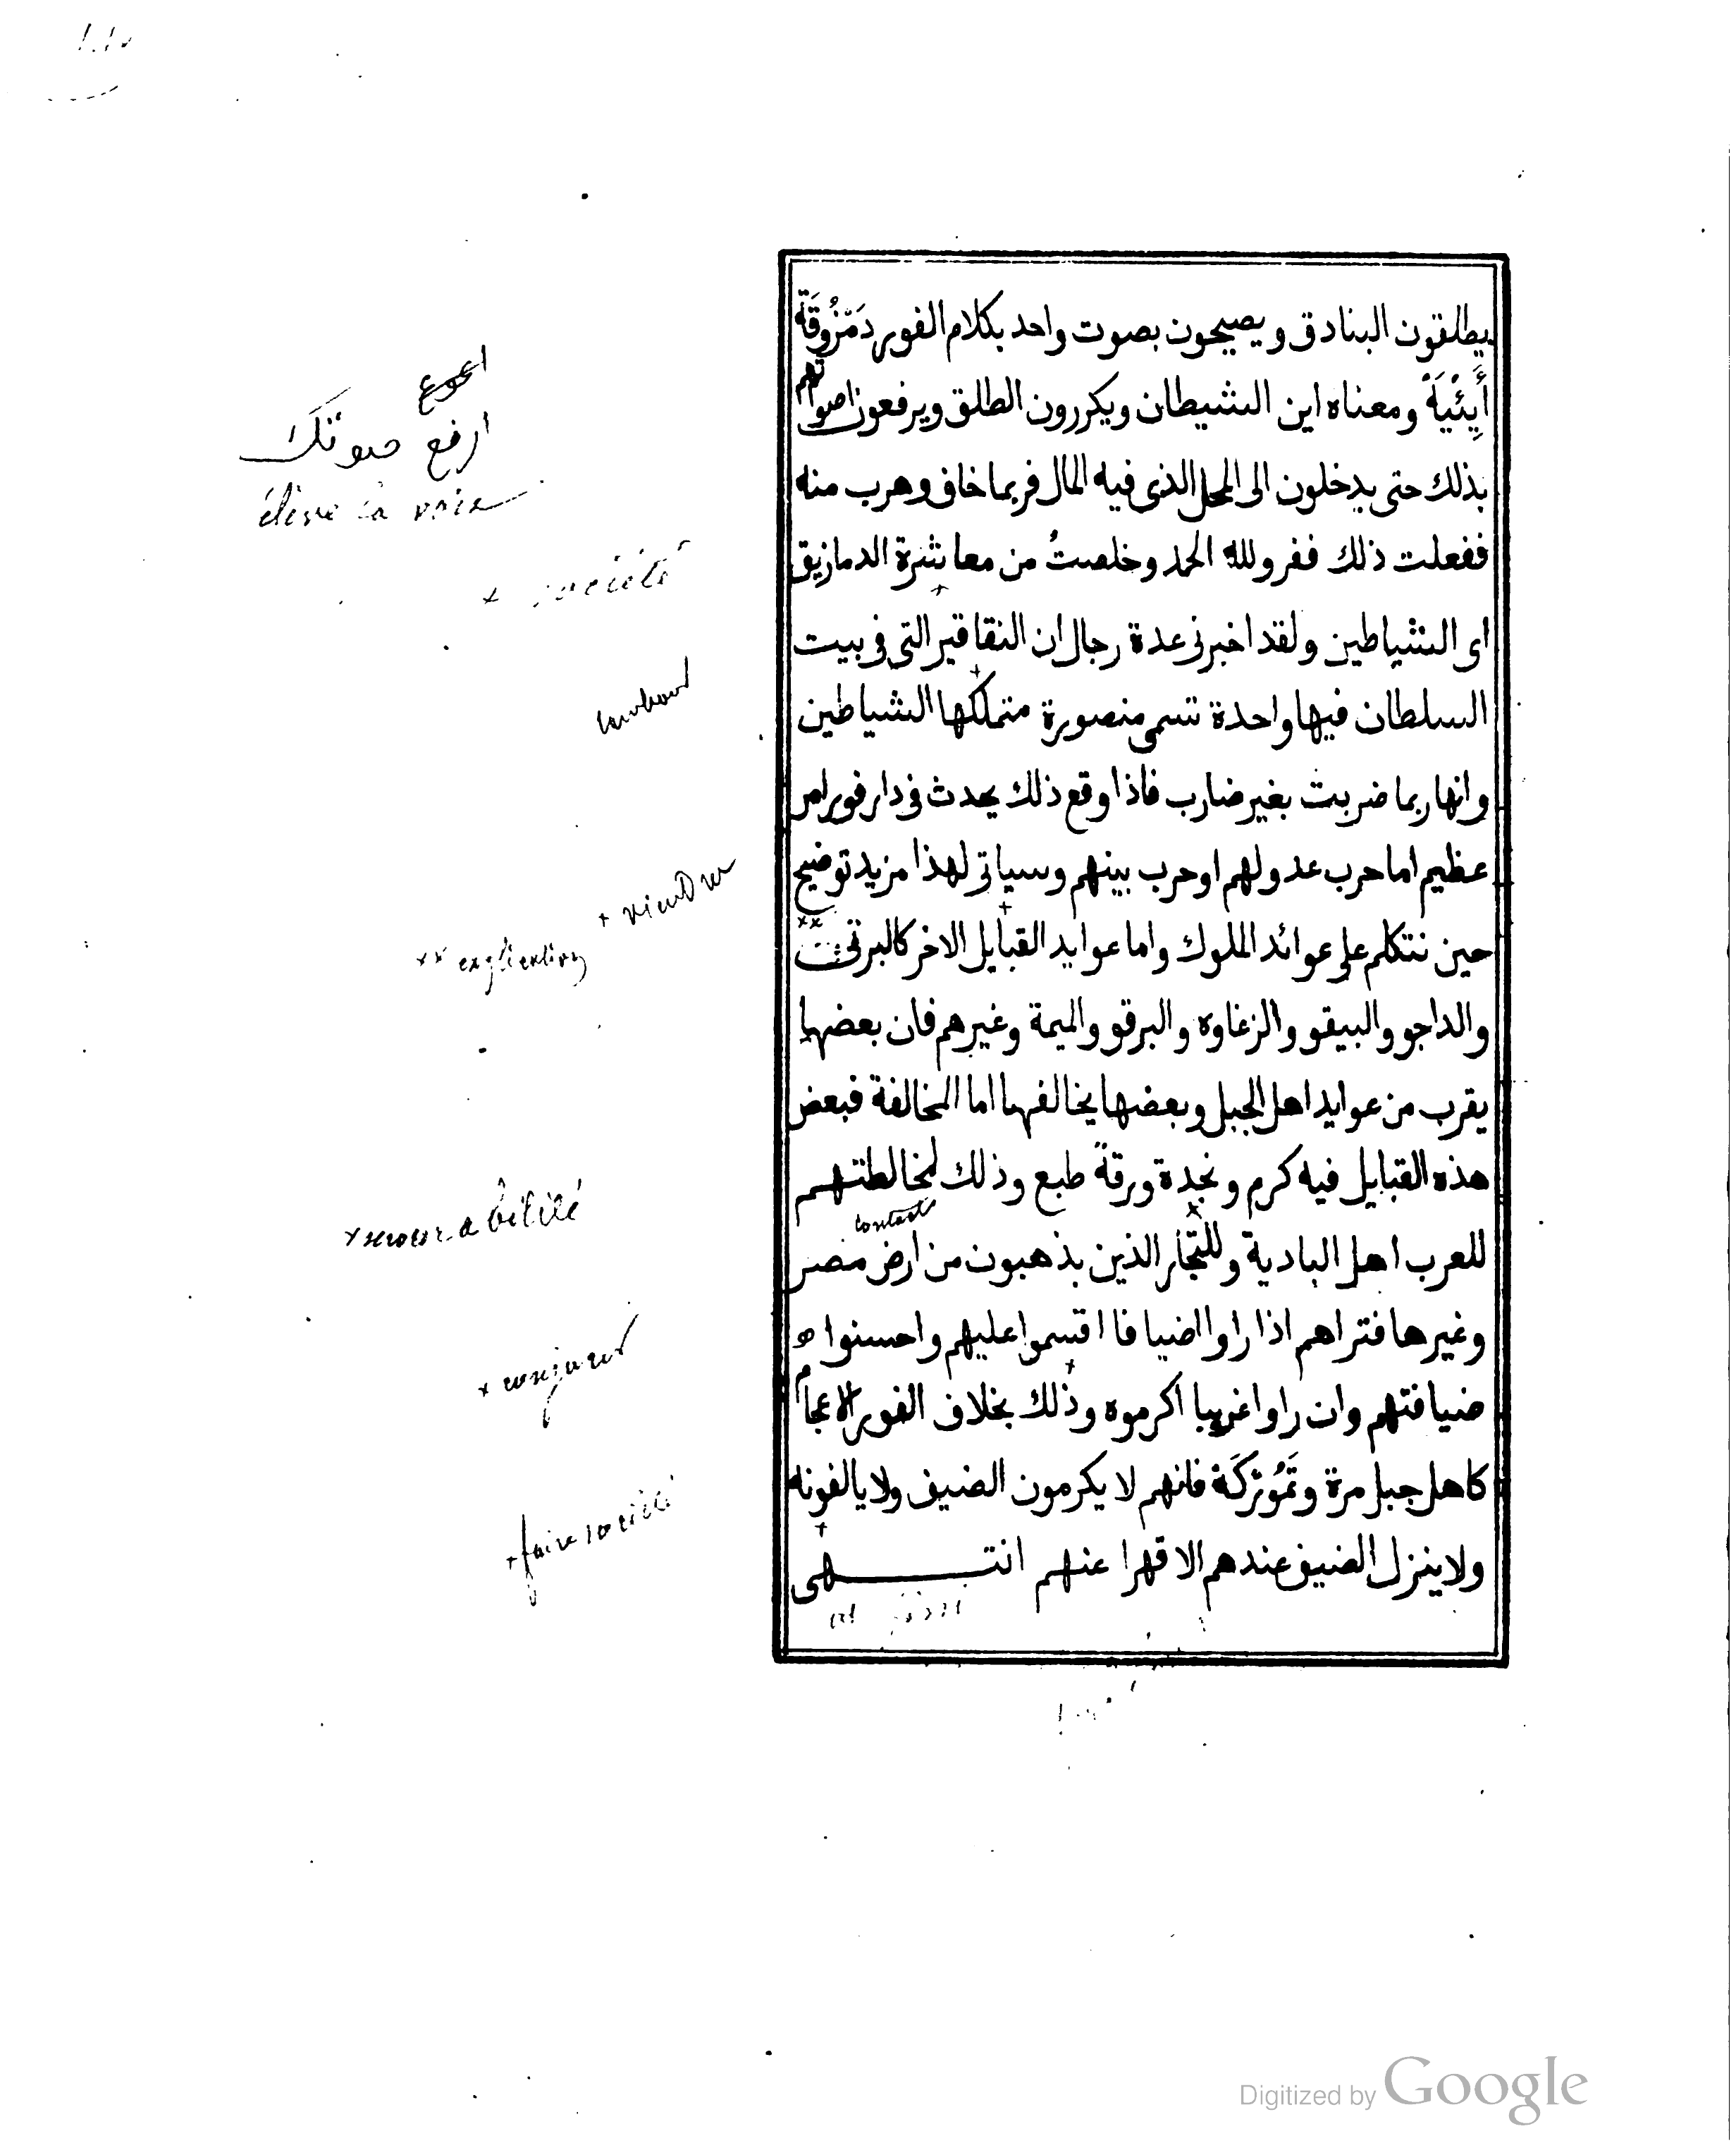 يطلقون البنادق ويصيحون بصوت واحد بكلام الفور دَمْزُوقَة
أَيِئْيَهْ ومعناه اين الشيطان ويكررون الطلق ويرفعون اصواتهم
بذلك حتى يدخلون الى المحل الذى فيه المال فربما خاف وهرب منه
ففعلت ذلك ففر ولله الحمد وخلصتُ من معاشرة الدمازيق
اى الشياطين ولقد اخبرنى عدة رجال ان النقاقير التى فى بيت
السلطان فيها واحدة تسمى منصورة متملكها الشياطين
وانها ربما ضربت بغير ضارب فاذا وقع ذلك يحدث فى دارفور امر
عظيم اما حرب عدو لهم او حرب بينهم وسياتى لهذا مزيد توضيح
حين نتكلم على عوائد الملوك واما عوايد القبايل الاخر كالبرتى
والداجو والبيقو والزغاوه والبرقو والميمة وغيرهم فان بعضها
يقرب من عوايد اهل الجبل وبعضها يخالفها اما المخالفة فبعض
هذه القبايل فيه كرم ونجدة ورقة طبع وذلك لمخالطتهم
contact
للعرب اهل البادية وللتجار الذين يذهبون من ارض مصر
وغيرها فتراهم اذا راوا اضيافا اقسموا عليهم واحسنوا
ضيافتهم وان راوا غريبا اكرموه وذلك بخلاف الفور الاعجام
كاهل جبل مرة وتَمُوْرْكَهْ فانهم لا يكرمون الضيف ولا يالفونه
ولا ينزل الضيف عندهم الا قهرا عنهم انتهى
ارفع صوتك
élève la voix
+ société
tambour
+ viendra
×× explication
× secour-abilité
× conjurer
+ faire société
Digitized by Google